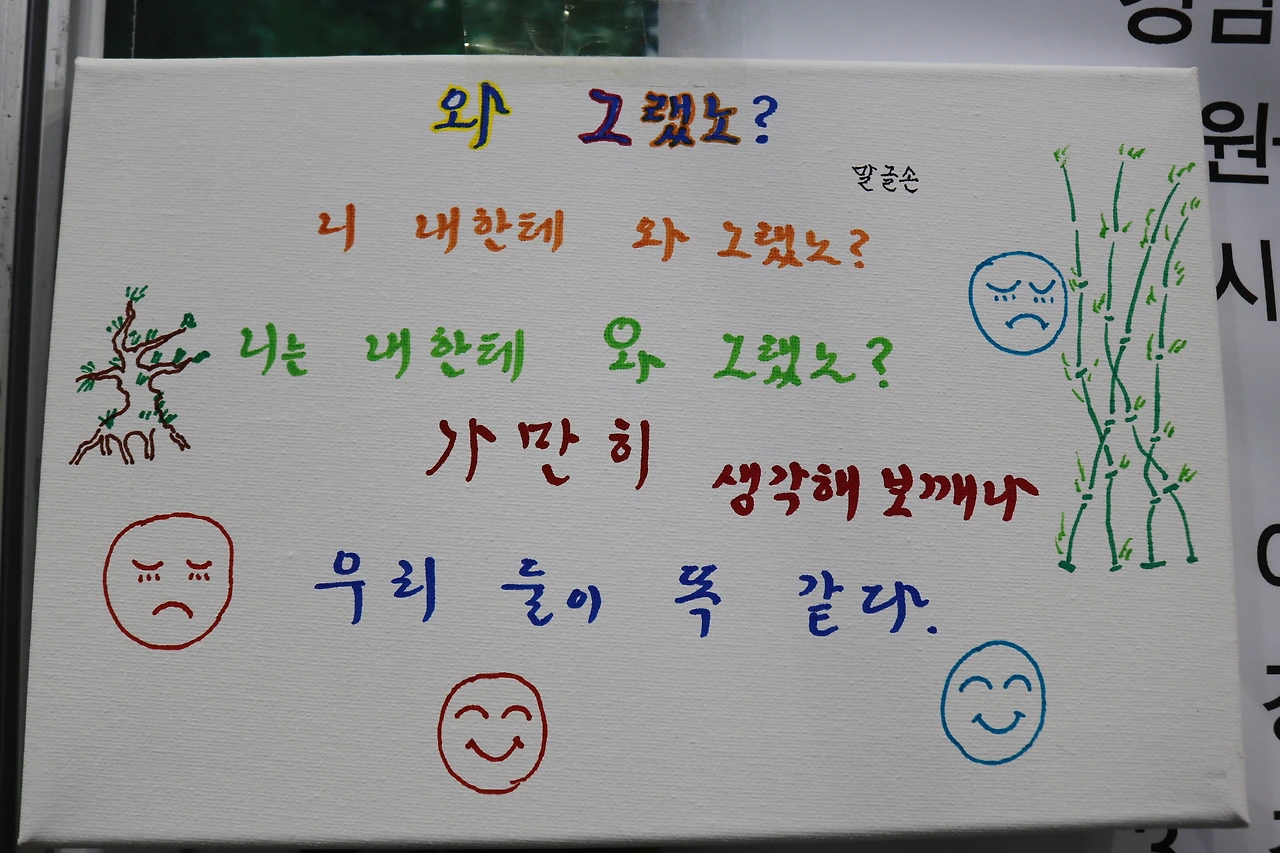 와 그랬노?
말글손
니 내한테 와 그랬노?
니는 내한테 와 그랬노?
가만히 생각해 보깨나
우리 둘이 똑 같다.
원
시